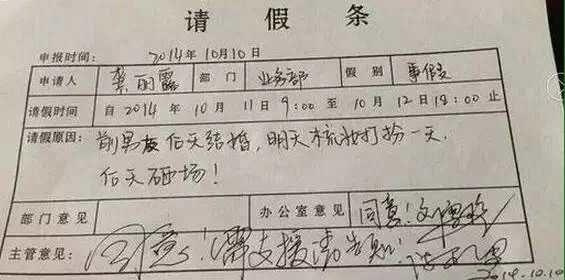 请假条
申报时间: 2014年10月10日
申请人 龚丽露 部门 业务部 假别 事假
请假时间 自2014年10月11日9:00至10月12日18:00止
请假原因: 前男友后天结婚,明天梳妆打扮一天.
后天砸场!
部门意见 办公室意见 同意!
主管意见: 同意!需支援请告知!
2014.10.10